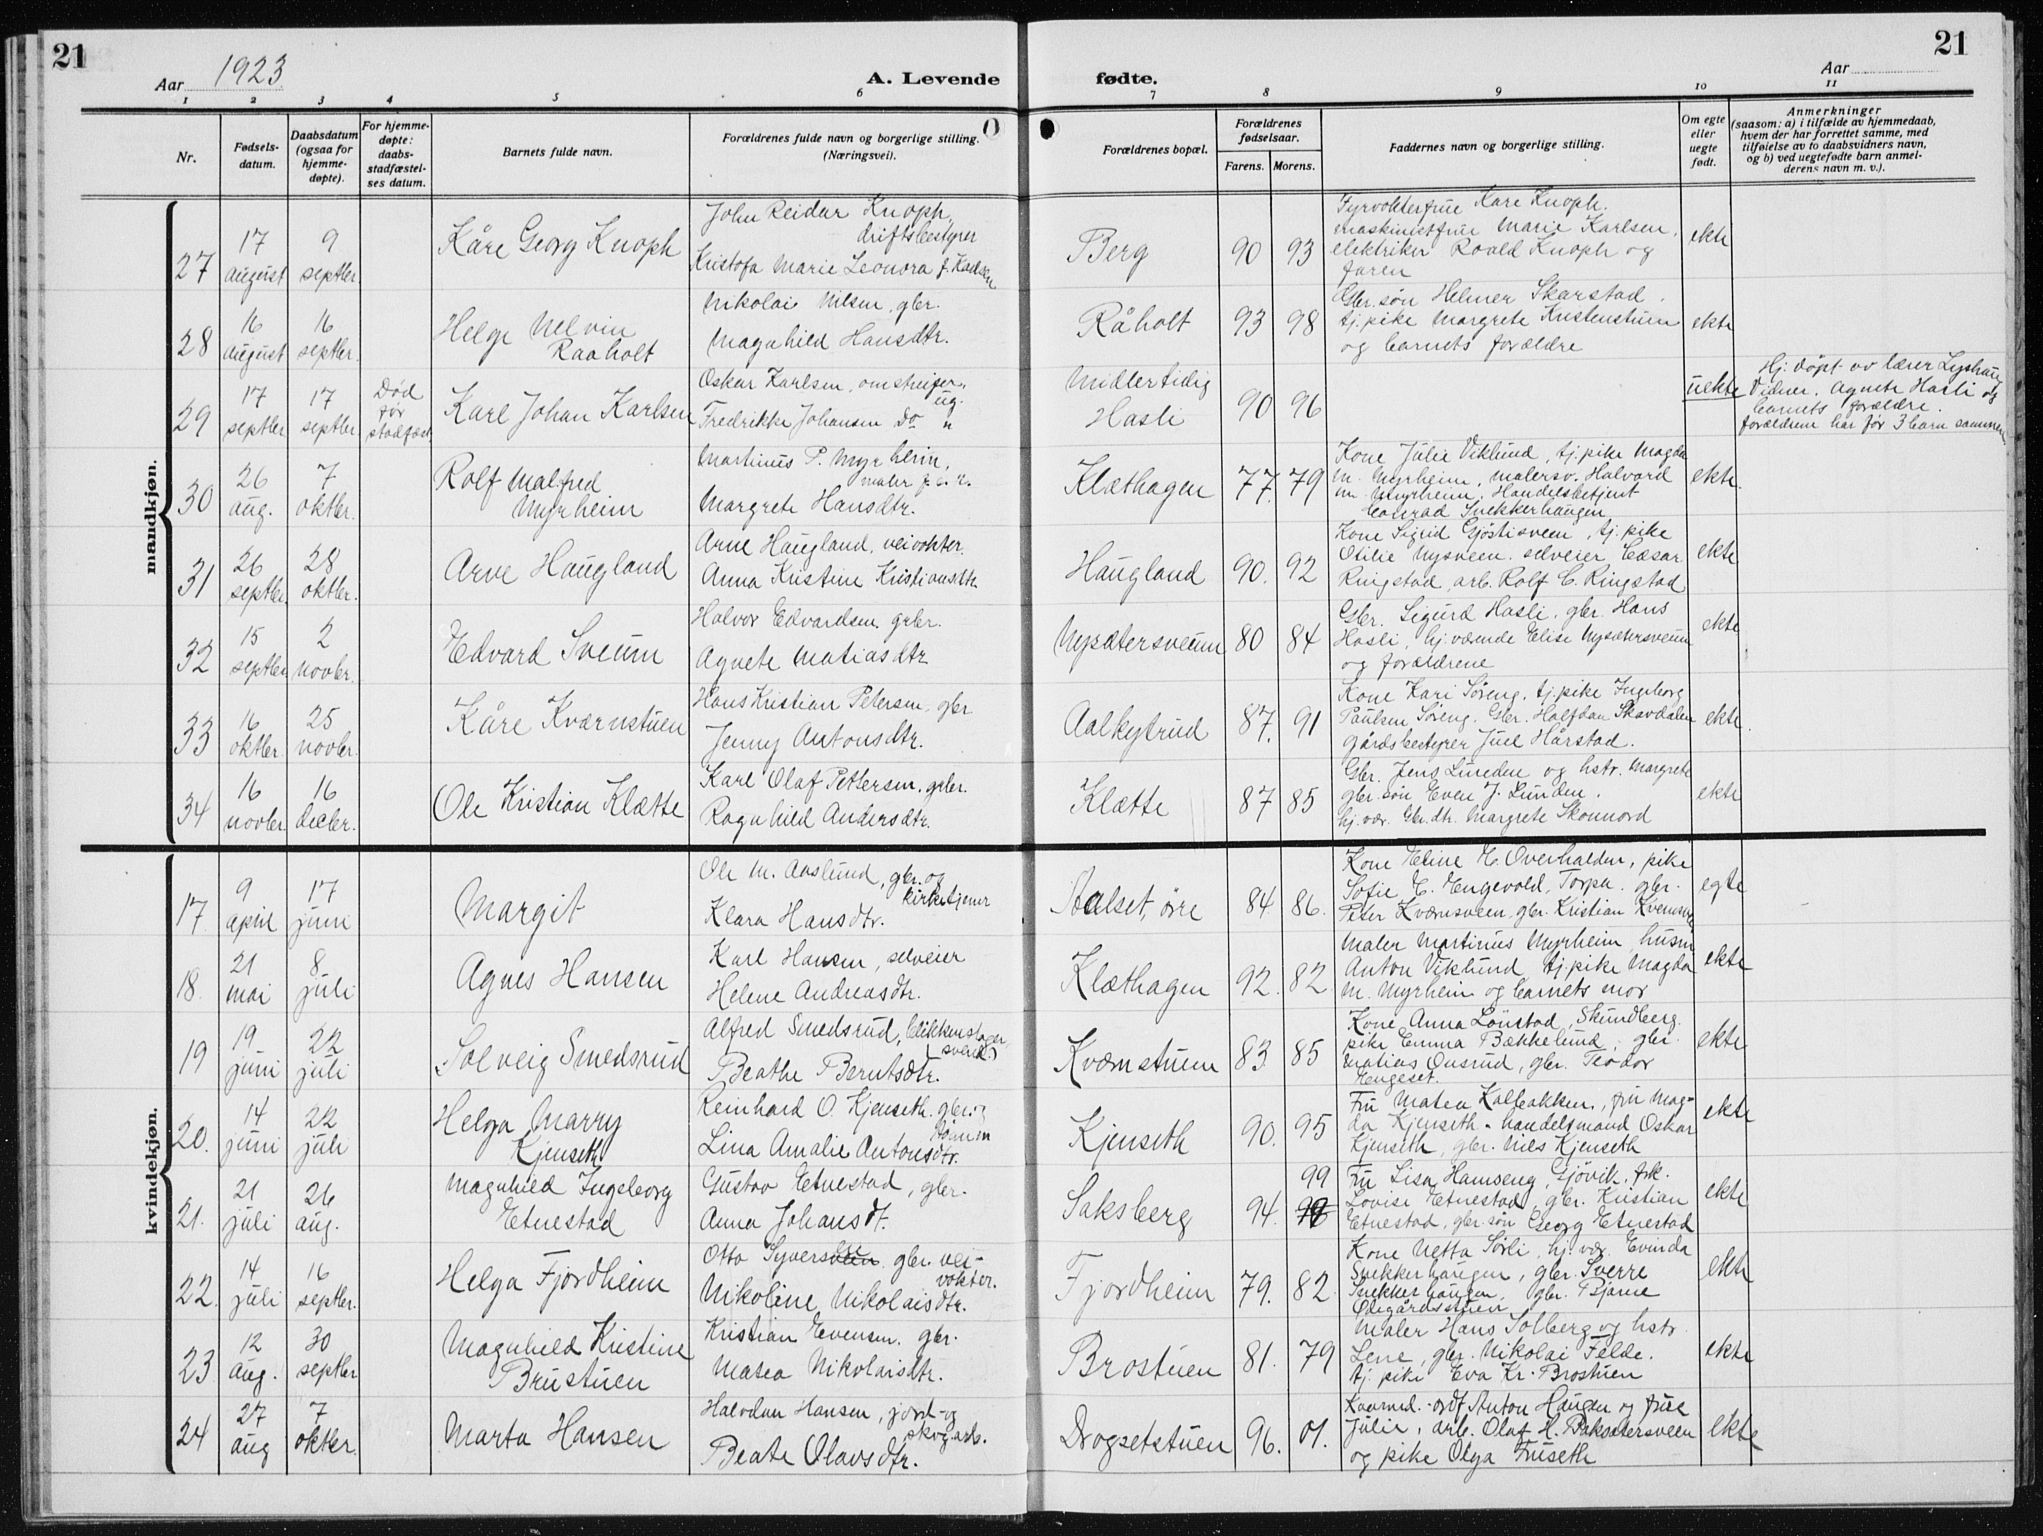 21
Aar 1923.
A. Levende
fødte.
Aar
21
1 2 3 4 5 6 7 8 9 10 11
Nr.
Fødsels-
datum.
Daabsdatum
(ogsaa for
hjemme-
døpte).
For hjemme-
døpte:
daabs-
stadfæstel-
ses datum.
Barnets fulde navn.
Forældrenes fulde navn og borgerlige stilling.
(Næringsvei).
Forældrenes bopæl.
Forældrenes
fødselsaar.
Farens. Morens.
Faddernes navn og borgerlige stilling.
Om egte
eller
uegte
født.
Anmerkninger
(saasom: a) i tilfælde av hjemmedaab,
hvem der har forrettet samme, med
tilføielse av to daabsvidners navn,
og b) ved uegtefødte barn anmel-
derens navn m. v.).
mandkjøn.
27
17
august
9
septbr.
Kåre Georg Knoph
John Reidar Knoph,
driftsbestyrer
Kristofa Marie Leonora f. Karlsen
Berg
90 93
Fyrvokterfrue Kare Knoph.
maskinistfrue Marie Karlsen,
elektriker Roald Knoph og
faren
ekte
28
16
august
16
septbr.
Helge Nelvin
Raaholt
Nikolai Nilsen, gbr.
Magnhild Hansdtr.
Råholt
93 98
Gbr. søn Helmer Skarstad.
tj. pike Margrete Kristenstuen
og barnets forældre
ekte
29
17
septbr
17
septbr
Død
før
stadfæst.
Karl Johan Karlsen
Oskar Karlsen, omstreifer,
ug.
Fredrikke Johansen do "
Midlertidig
Hasli
90 96
uekte
Hj. døpt av lærer Lyshaug
Vidner. Agnete Hasli og
barnets forældre.
forældrene har før 3 barn sammen
30
26
aug.
7
oktbr.
Rolf Malfred
Myrheim
Martinus P. Myrheim,
maler
Margrete Hansdtr.
Klæthagen
77. 79
Kone Julie Viklund, tj. pike Magda
M. Myrheim, malersv. Halvard
M. Myrheim. Handelsbetjent
Conrad Snekkerhaugen
ekte.
31
26
septbr.
28
oktbr.
Arve Haugland
Arne Haugland, veivokter.
Anna Kristine Kristiansdtr.
Haugland
90. 92
Kone Sigrid Gjøstisveen, tj. pike
Otilie Nysveen. selveier Cæsar
Ringstad, arb. Rolf C. Ringstad
ekte
32
15
septbr
2
novbr.
Edvard Sveum
Halvor Edvardsen, gbr.
Agnete Matiasdtr
Nysætersveum
80 84
Gbr. Sigurd Hasli, gbr. Hans
Hasli, hj. værende Elise Nysætersveum
og forældrene
ekte
33
16
oktbr.
25
novbr.
Kåre Kværnstuen
Hans Kristian Petersen, gbr
Jenny Antonsdtr.
Aalkytrud
87. 91
Kone Kari Søreng, tj. pike Ingeborg
Paulsen Søreng. Gbr. Halfdan Skavdalen
gårdsbestyrer Juel Hårstad.
ekte.
34
16
novbr.
16
decbr.
Ole Kristian Klætte
Karl Olaf Pettersen, gbr.
Ragnhild Andersdtr.
Klætte
87 85
Gbr. Jens Lunden og hstr. Margrete
gbr. søn Even J. Lunden.
hj. vær. Gbr. dtr. Margrete Skonnord
ekte
kvindekjøn.
17.
9
april
17
juni
Margit
Ole M. Aaslund, gbr. og
kirketjener
Klara Hansdtr.
Aalset, øre
84 86.
Kone Eline H. Overhalden, pike
Sofie E. Engevold, Torpa. gbr.
Peter Kværnsveen, gbr. Kristian Kvernsv.
egte
18.
21
mai
8
juli
Agnes Hansen
Karl Hansen, selveier
Helene Andreasdtr.
Klæthagen
92. 82
Maler Martinus Myrheim, husm
Anton Viklund, tj. pike Magda
M. Myrheim og barnets mor
ekte
19
19
juni
22
juli
Solveig Smedsrud
Alfred Smedsrud, blikkenslager
(svend)
Beathe Berntsdtr.
Kværnstuen
83. 85
Kone Anna Lønstad, Skundberg.
pike Emma Bækkelund, gbr.
Matias Onsrud, gbr. Teodor
Engeset.
ekte
20.
14
juni
22
juli
Helga Marry
Kjenseth
Reinhard O. Kjenseth. gbr.
Lina Amalie Antonsdtr.
Kjenseth
90. 95
Fru Matea Kolbakken, fru Mag-
da Kjenseth. handelsmand Oskar
Kjenseth, gbr. Nils Kjenseth
ekte
21.
21
juli
26
aug.
Magnhild Ingeborg
Etnestad
Gustav Etnestad, gbr.
Anna Johansdt.
Saksberg
94. 99
Fru Lisa Hamseng, Gjøvik, frk.
Lovise Etnestad, gbr. Kristian
Etnestad, gbr. søn Georg Etnestad
ekte
22.
14
juli
16
septbr.
Helga Fjordheim
Otto Syversen. gbr. vei-
vokter.
Nikoline Nikolaisdtr.
Fjordheim
79. 82
Kone Netta Sørli, hj. vær. Evinda
Snekkerhaugen, gbr. Sverre
Snekkerhaugen, gbr. Bjarne
Ødegårdsstuen
ekte
23
12
aug.
30
septbr
Magnhild Kristine
Brustuen
Kristian Evensen. gbr.
Matea Nikolaisdtr.
Brostuen
81. 79
Maler Hans Solberg og hstr.
Lene, gbr. Nikolai Felde.
tj. pike Eva Kr. Brostuen
ekte
24
27
aug
7
oktbr.
Marta Hansen
Halvdan Hansen, jord- og
skogarb.
Beate Olavsdtr.
Drogsetstuen
96. 01.
Anton Haugen og frue
Julie, arb. Olaf H. Baksætersveen
og pike Olga Fruseth
ekte